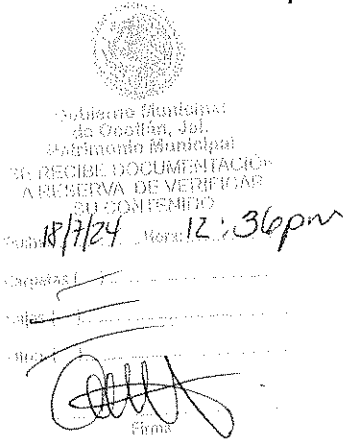 Gobierno Municipal
de Ocotlán, Jal.
Patrimonio Municipal
SE RECIBE DOCUMENTACIÓN
A RESERVA DE VERIFICAR
SU CONTENIDO
Fecha: 18/7/24 Hora: 12:36pm
Carpetas (
Cajas (
Otros (
Firma